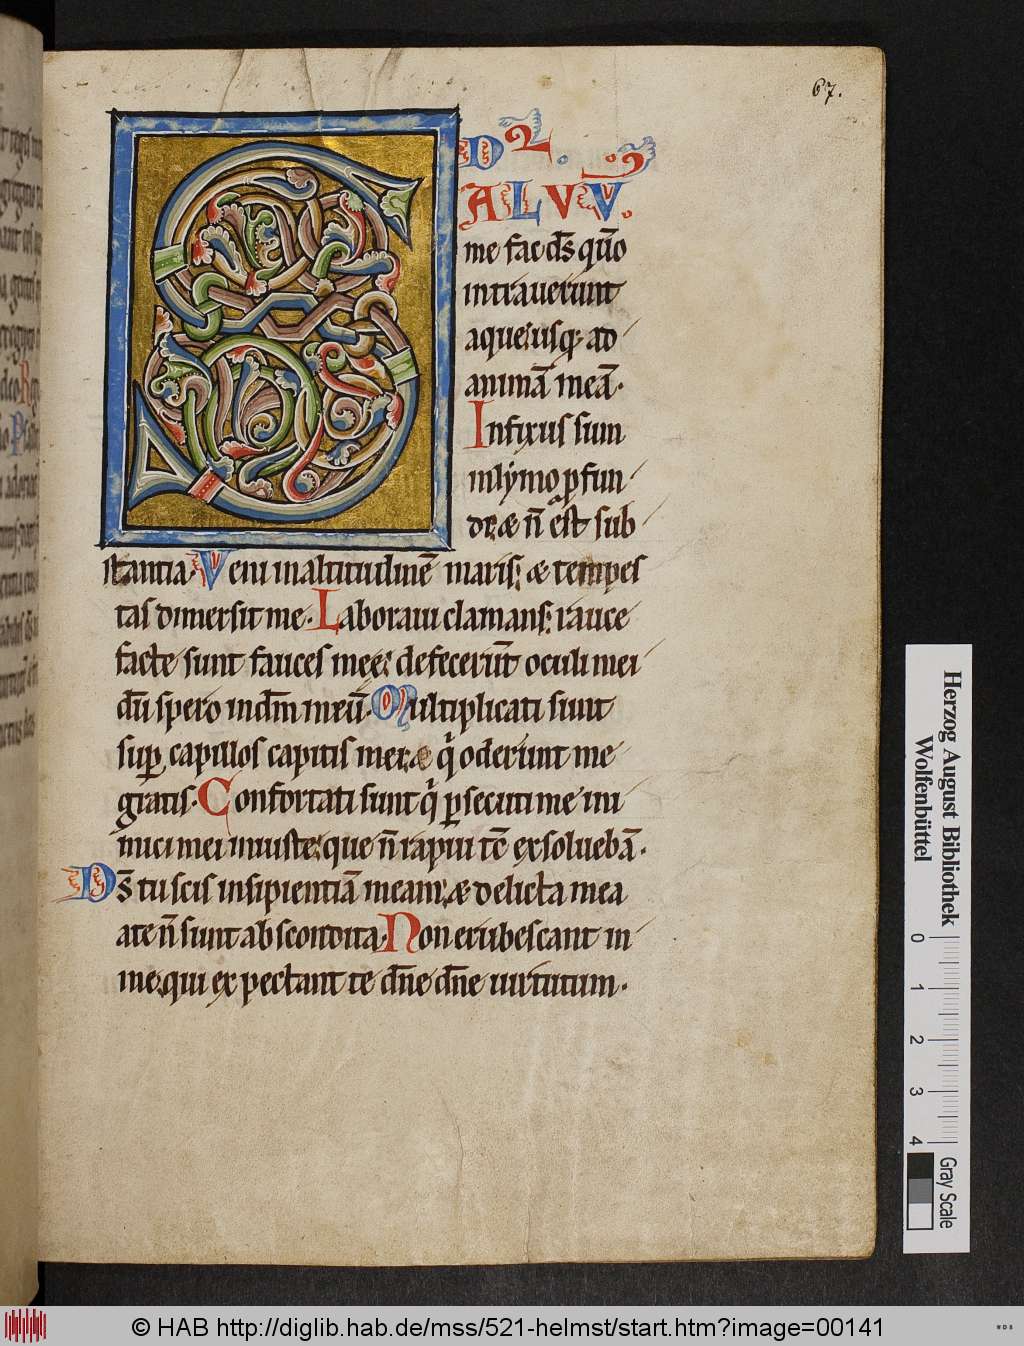 67.
S
ALVV.
me fac ds̄ qūo
intrauerunt
aque usq; ad
animā meā.
Infixus sum
in lymo ꝓfun
di: & n̄ est sub
stantia. Veni in altitudinē maris: & tempes
tas dimersit me. Laboraui clamans: rauce
facte sunt fauces mee: defecerūt oculi mei
dū spero in dm̄ meū. Multiplicati sunt
suꝑ capillos capitis mei: & q̇ oderunt me
gratis. Confortati sunt q̇ ꝑsecuti me ini
mici mei iniuste: que n̄ rapui tc̄ exsoluebā.
Ds̄ tu scis insipientiam meam: & delicta mea
a te n̄ sunt abscondita. Non erubescant in
me qui expectant te dn̄e dn̄e uirtutum.
Herzog August Bibliothek
Wolfenbüttel
0 1 2 3 4
Gray Scale
© HAB http://diglib.hab.de/mss/521-helmst/start.htm?image=00141